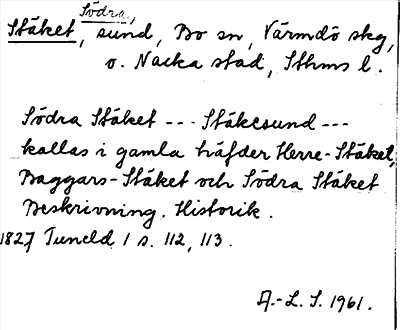 Stäket, Södra, sund, Bo sn, Värmdö skg,
o. Nacka stad, Sthms l.
Södra Stäket --- Stäkesund ---
kallas i gamla häfder Herre-Stäket,
Baggars-Stäket och Södra Stäket
Beskrivning. Historik.
1827 Tuneld 1 s. 112, 113.
A.-L. S. 1961.